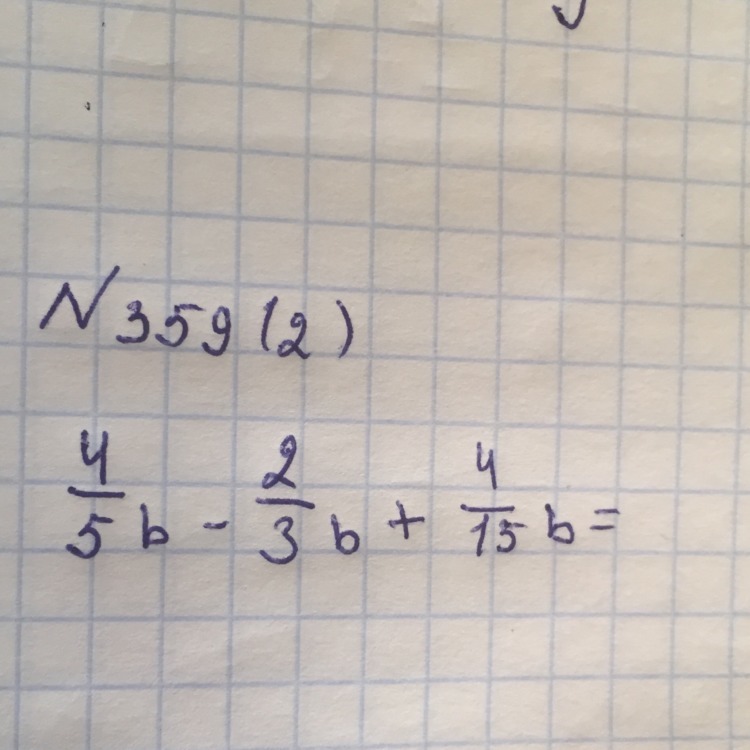 N 359 (2)
4/5 b - 2/3 b + 4/15 b =